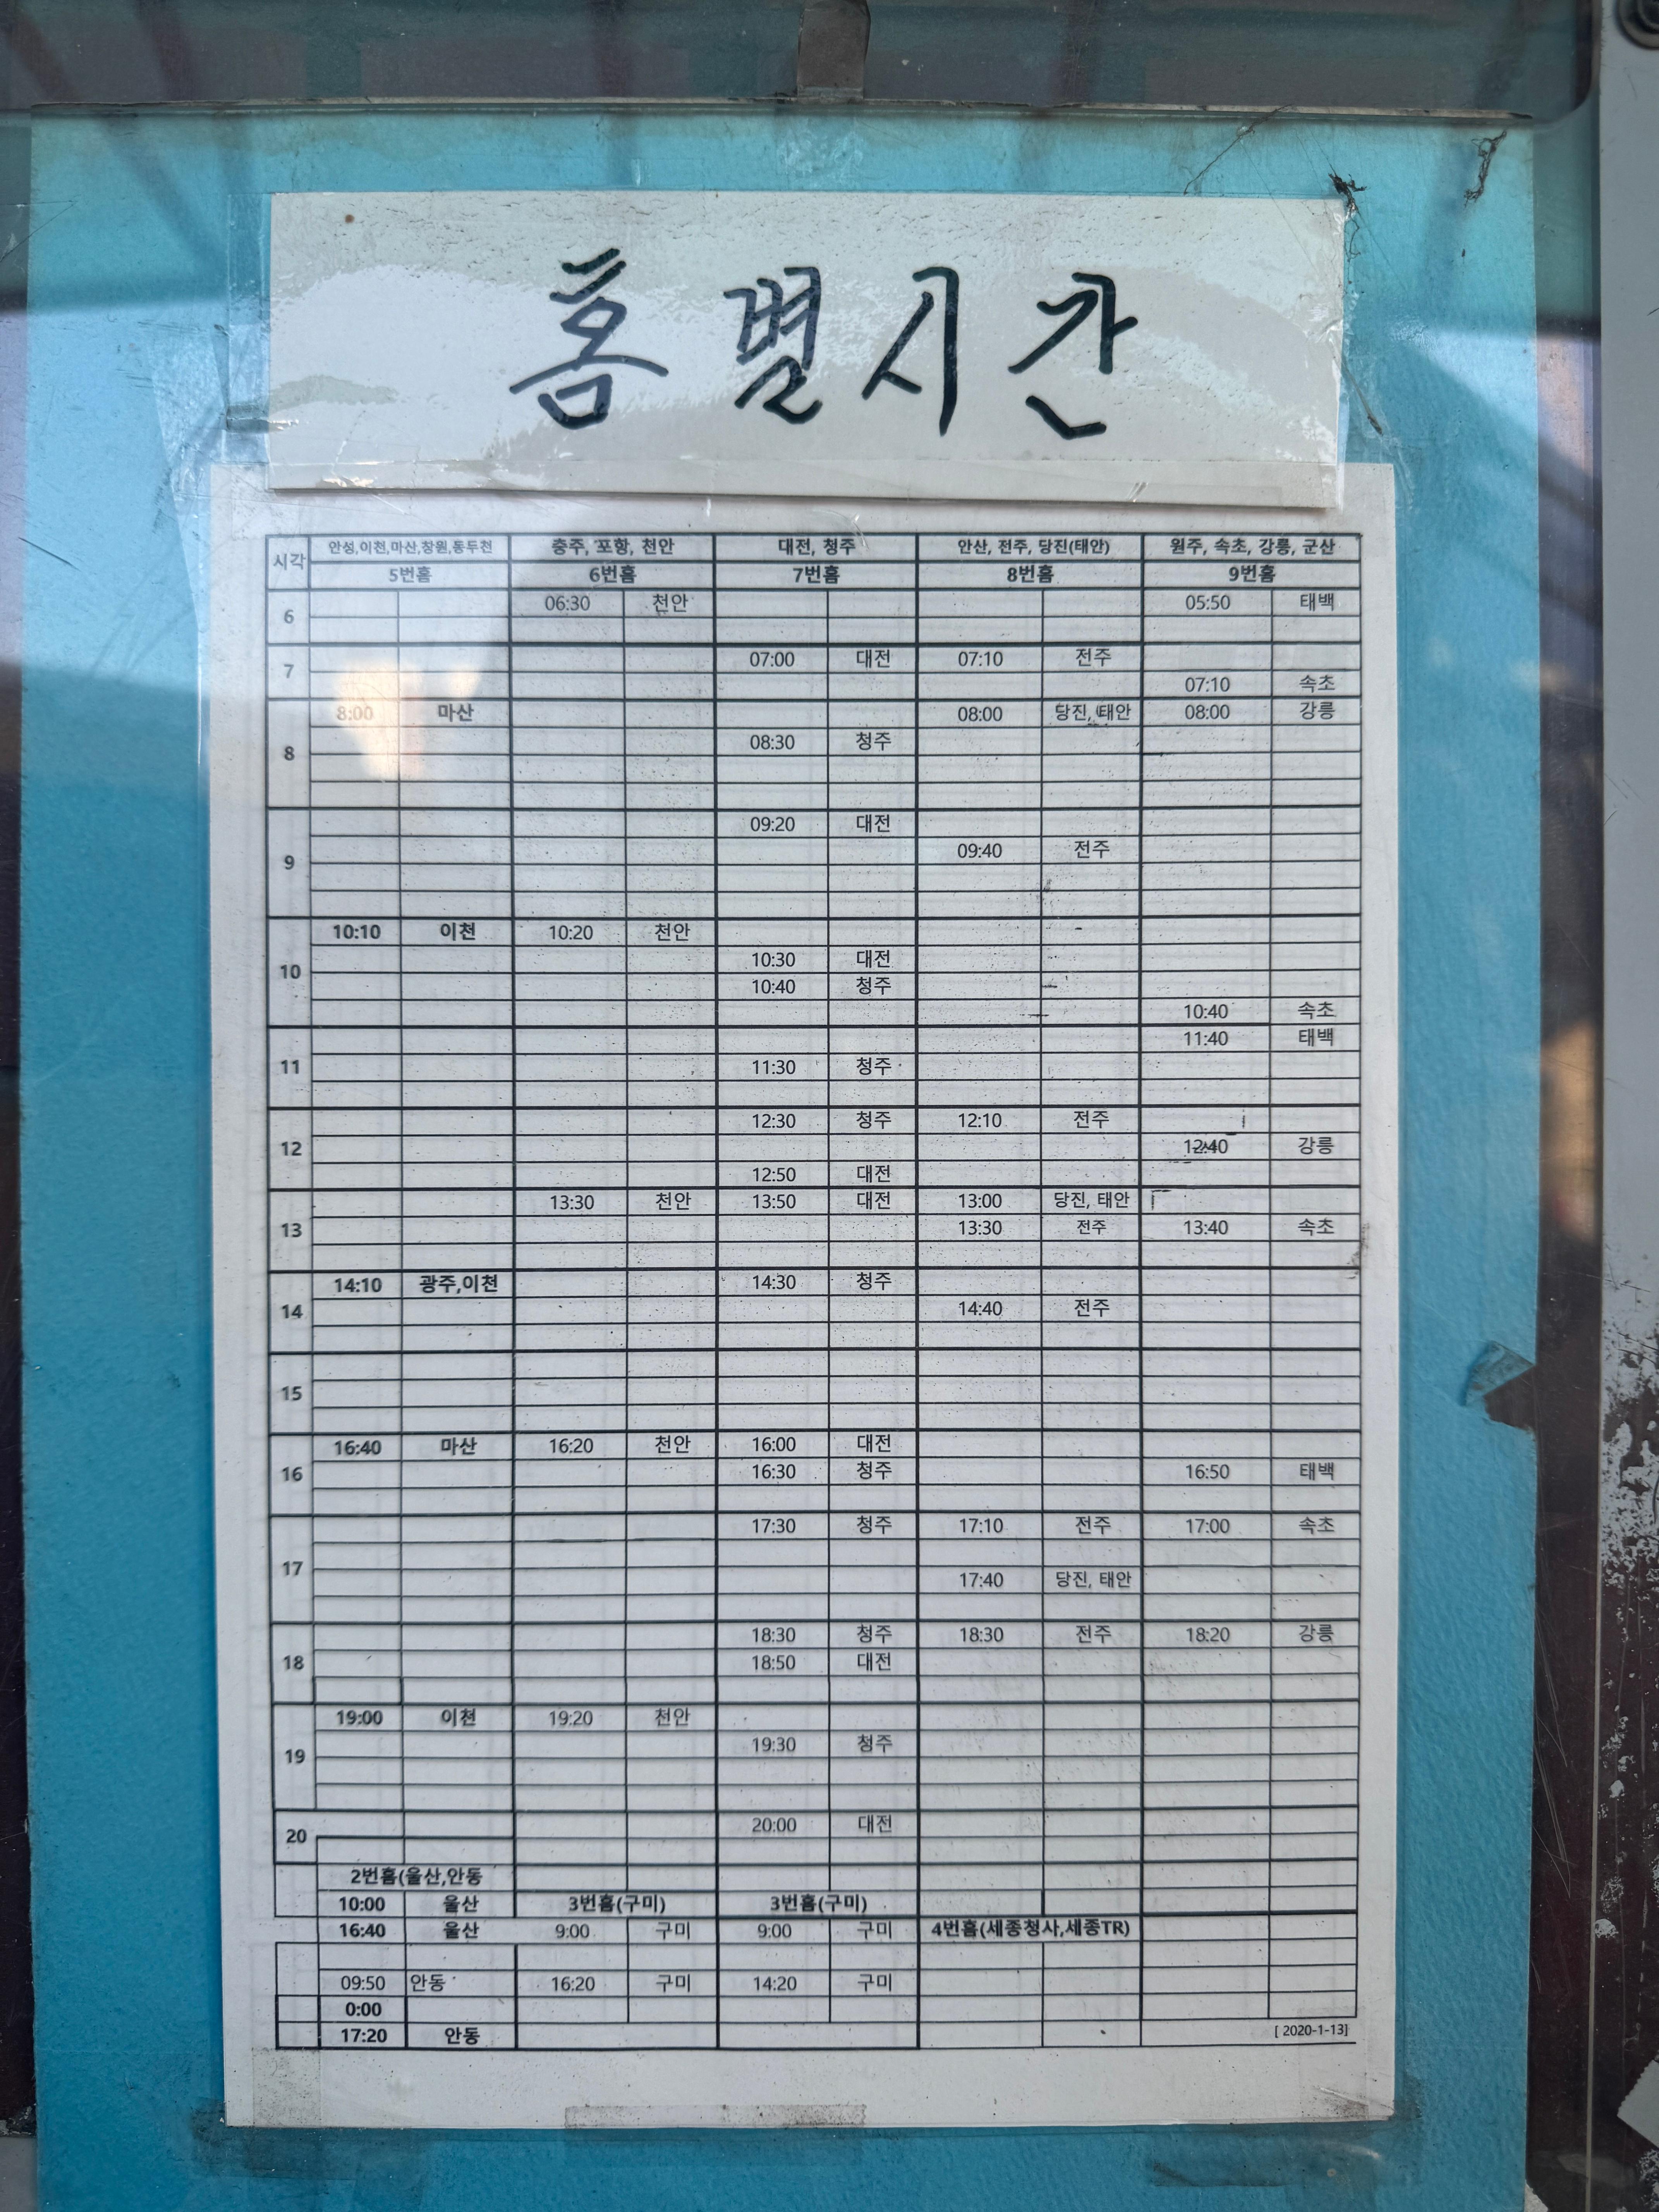 홈별시간
시각 안성,이천,마산,창원,동두천 충주, 포항, 천안 대전, 청주 안산, 전주, 당진(태안) 원주, 속초, 강릉, 군산
5번홈 6번홈 7번홈 8번홈 9번홈
6 06:30 천안 05:50 태백
7 07:00 대전 07:10 전주
07:10 속초
8 8:00 마산 08:00 당진, 태안 08:00 강릉
08:30 청주
9 09:20 대전
09:40 전주
10 10:10 이천 10:20 천안
10:30 대전
10:40 청주
10:40 속초
11 11:40 태백
11:30 청주
12 12:30 청주 12:10 전주
12:40 강릉
12:50 대전
13 13:30 천안 13:50 대전 13:00 당진, 태안
13:30 전주 13:40 속초
14 14:10 광주,이천 14:30 청주
14:40 전주
15
16 16:40 마산 16:20 천안 16:00 대전
16:30 청주 16:50 태백
17 17:30 청주 17:10 전주 17:00 속초
17:40 당진, 태안
18 18:30 청주 18:30 전주 18:20 강릉
18:50 대전
19 19:00 이천 19:20 천안
19:30 청주
20 20:00 대전
2번홈(울산,안동
10:00 울산 3번홈(구미) 3번홈(구미)
16:40 울산 9:00 구미 9:00 구미 4번홈(세종청사,세종TR)
09:50 안동 16:20 구미 14:20 구미
0:00
17:20 안동 [ 2020-1-13]